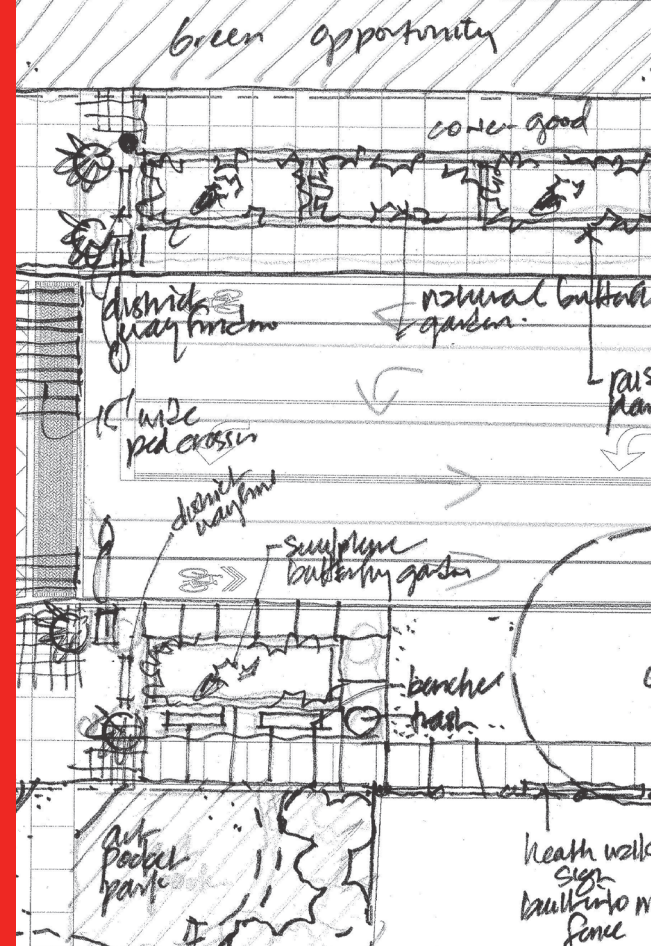 Green opportunity
cover good
district
wayfinding
natural butterfl
garden.
rais
plan
wide
ped crossin
district
wayfind
sculpture
butterfly garden
benches
trash
art
pocket
park
heath walk
sign
built into
fence